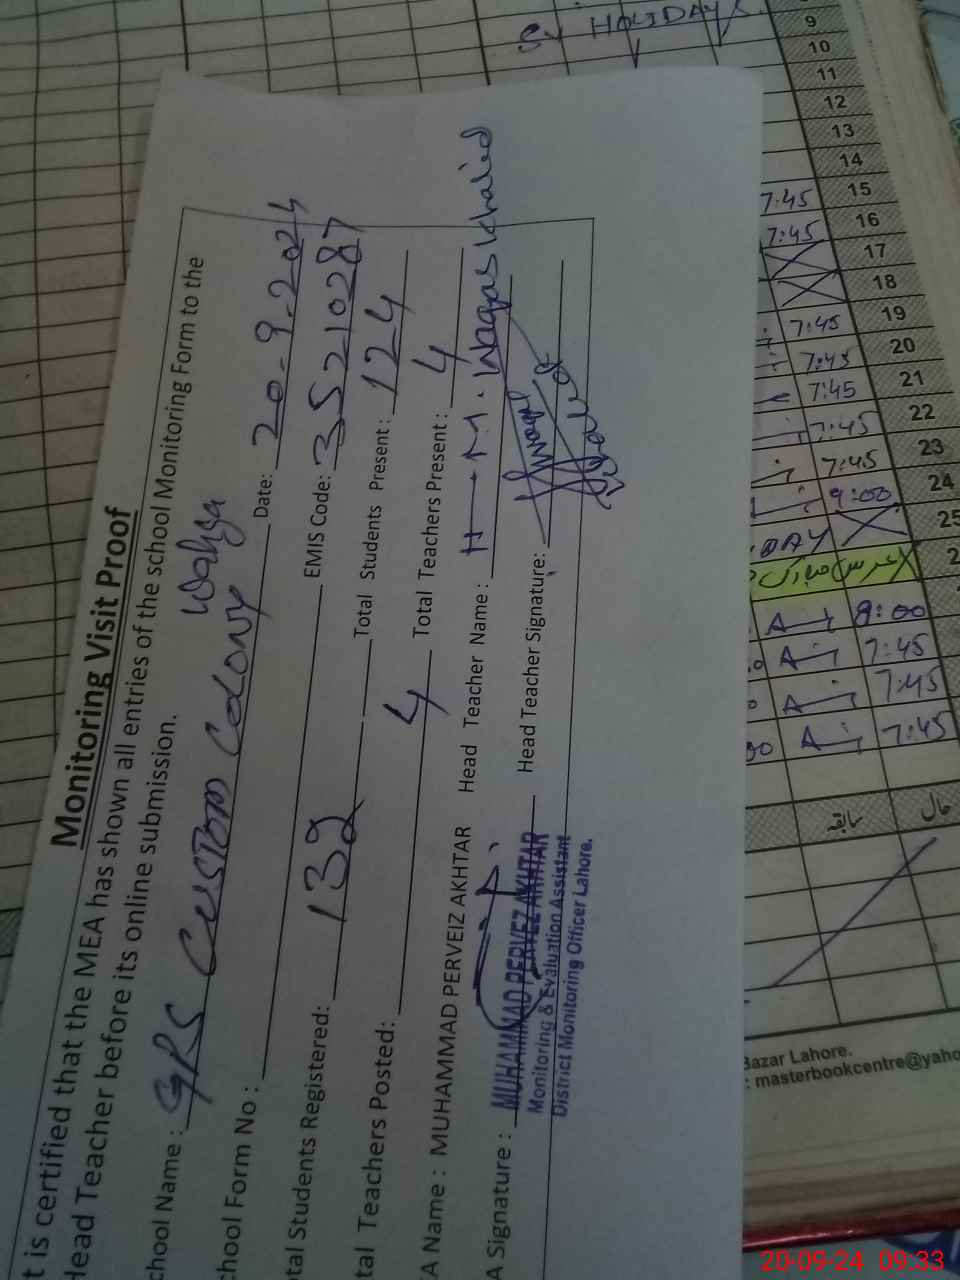 Monitoring Visit Proof
t is certified that the MEA has shown all entries of the school Monitoring Form to the
Head Teacher before its online submission.
chool Name : GPS Custom Colony Wahga
chool Form No : Date: 20-9-2024
tal Students Registered: 132 EMIS Code: 35210287
tal Teachers Posted: 4 Total Students Present : 124
Total Teachers Present : 4
A Name : MUHAMMAD PERVEIZ AKHTAR Head Teacher Name : H.M. Waqas Khalied
A Signature : Head Teacher Signature:
MUHAMMAD PERVEZ AKHTAR
Monitoring & Evaluation Assistant
District Monitoring Officer Lahore.
HOLIDAYS
9
10
11
12
13
14
7:45 15
7:45 16
17
18
7:45 19
7:45 20
7:45 21
7:45 22
7:45 23
9:00 24
DAY 25
عرس مبارک
8:00
7:45
7:45
7:45
سابقہ حال
Bazar Lahore.
: masterbookcentre@yaho
20-09-24 09:33